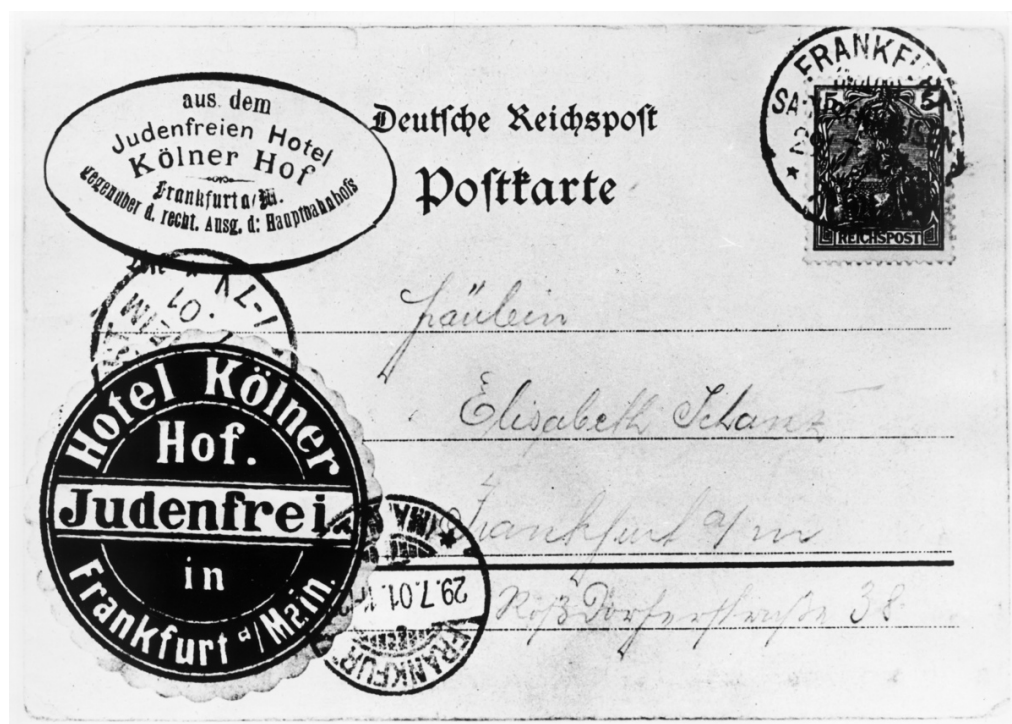 aus dem
Judenfreien Hotel
Kölner Hof
Frankfurt a/M.
gegenüber d. recht. Ausg. d: Hauptbahnhofs
Deutsche Reichspost
Postkarte
FRANKFU
5 5
REICHSPOST
Fräulein
Elisabeth Schanz
Frankfurt a/m
Roßdorferstraße 38
Hotel Kölner
Hof.
Judenfrei
in
Frankfurt a/Main.
29.7.01.
FRANKFURT